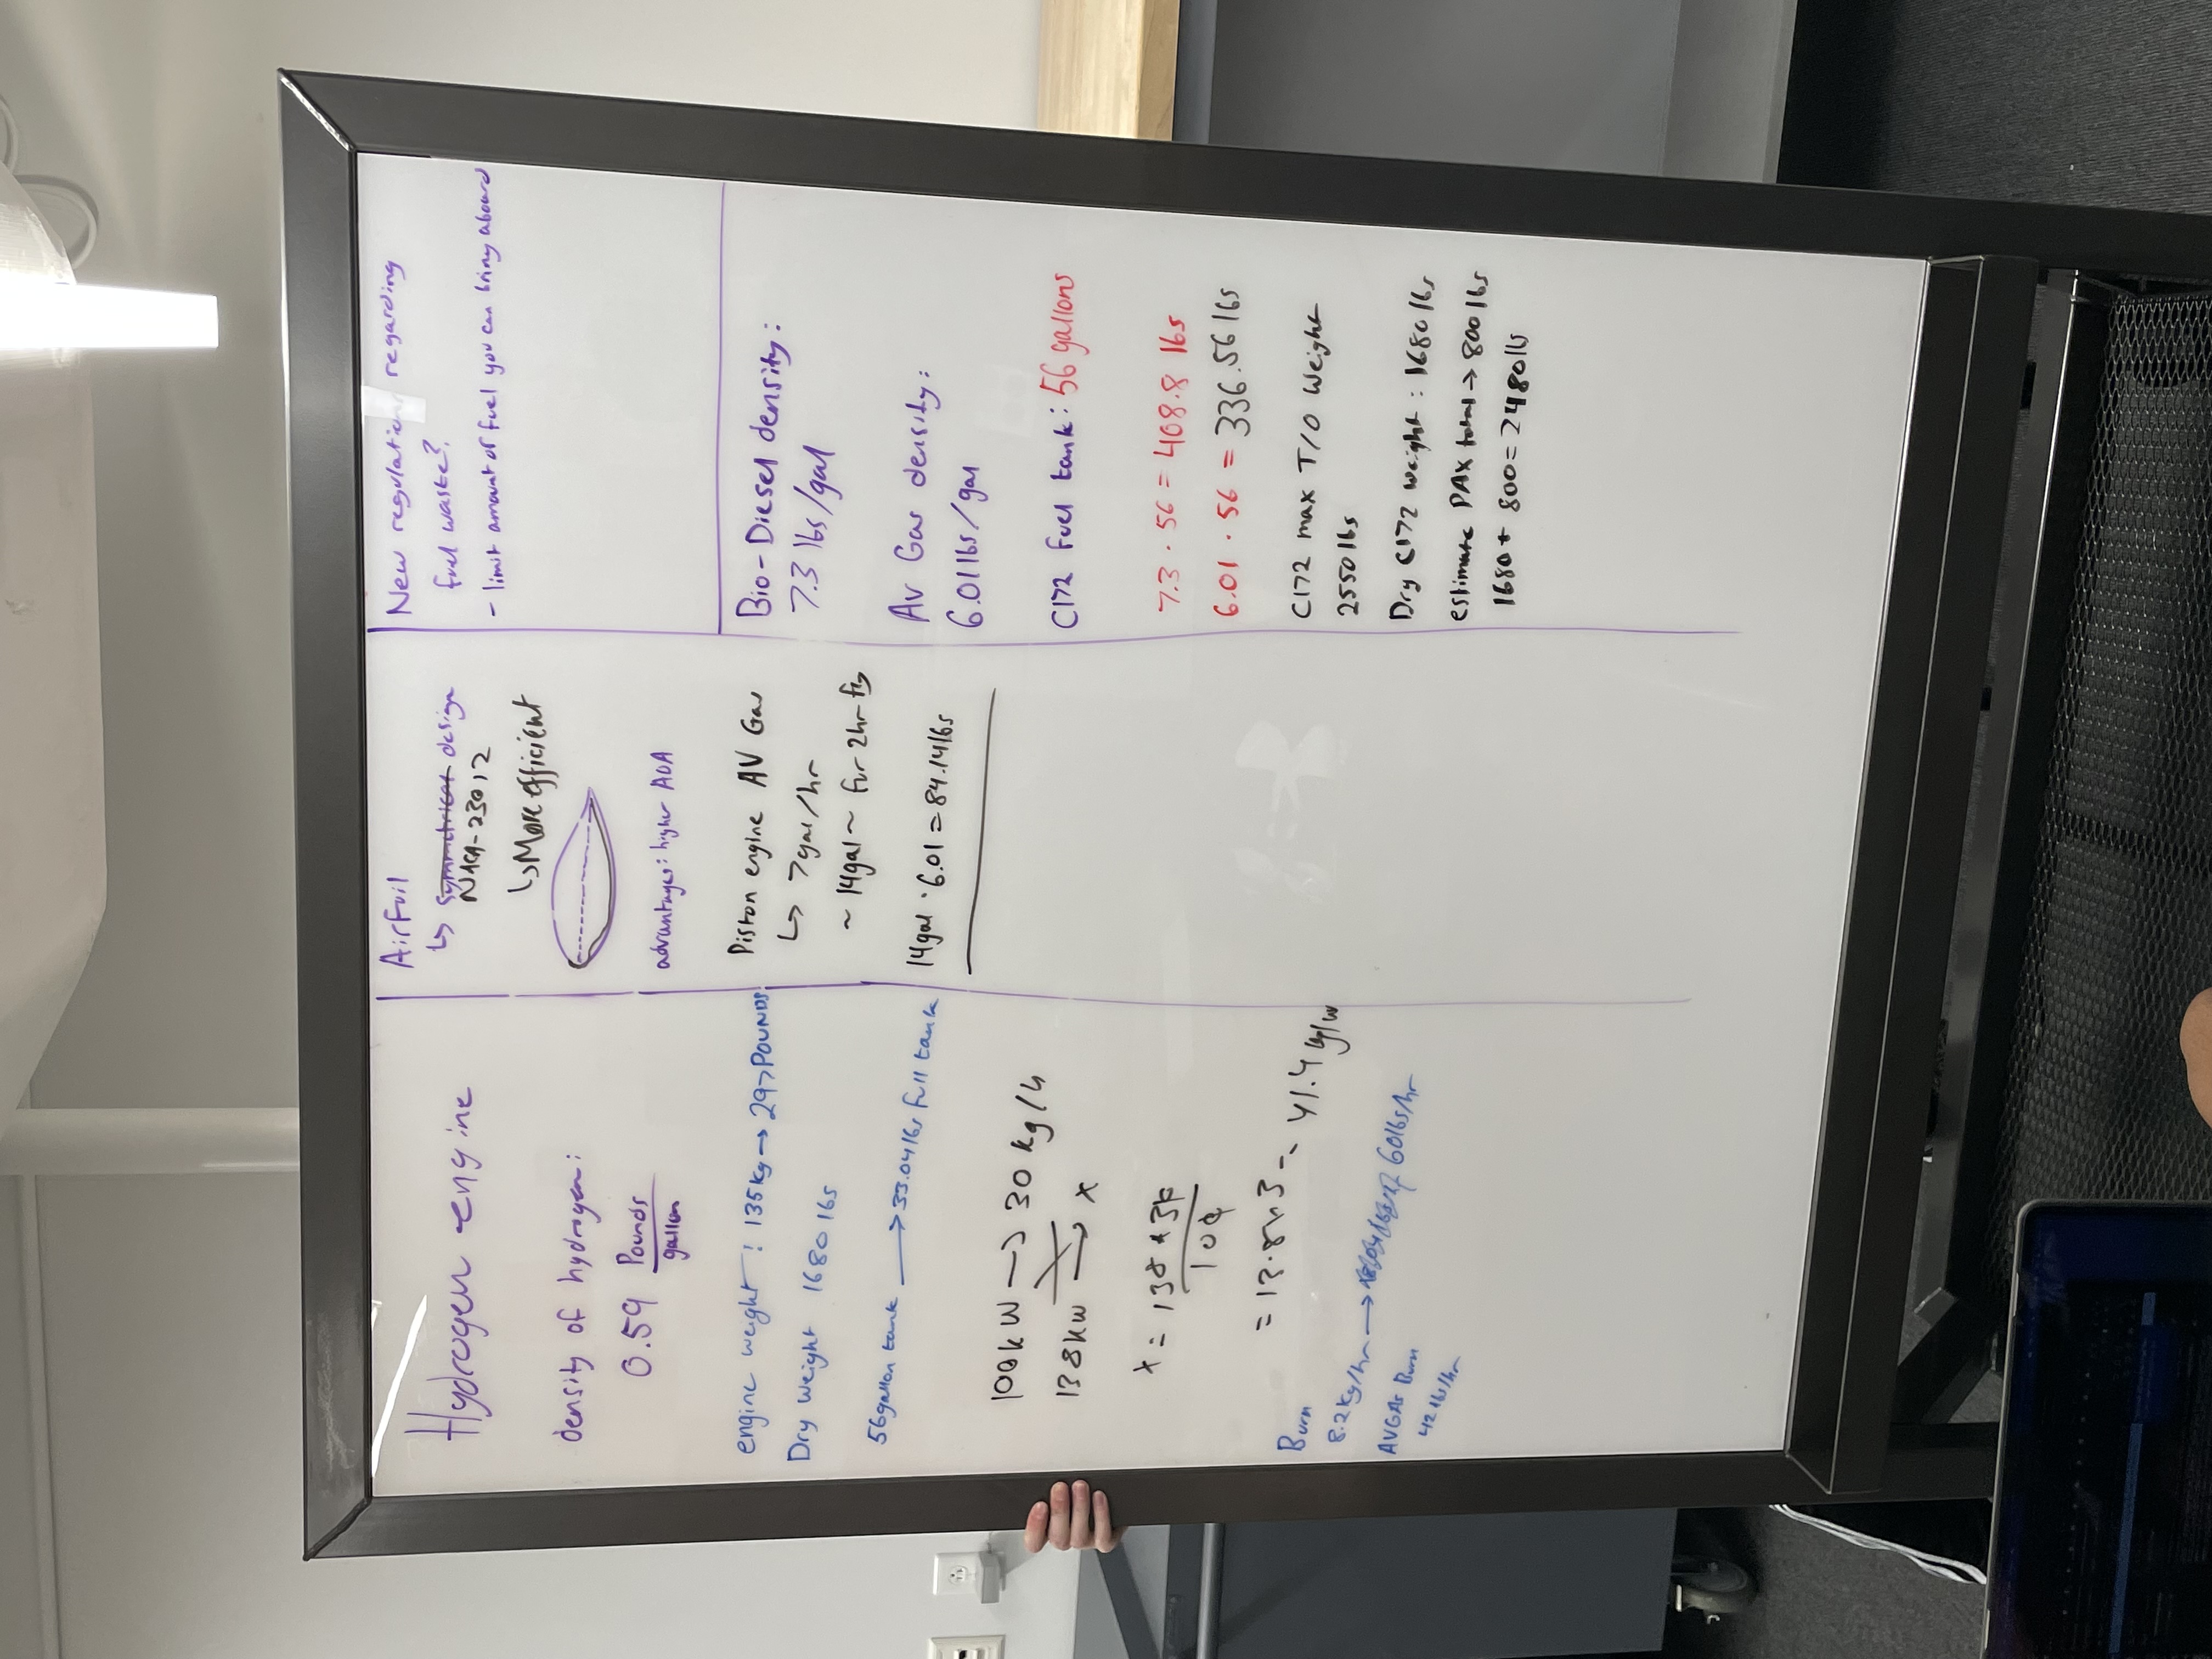 Hydrogen engine
density of hydrogen:
0.59 Pounds
gallon
engine weight: 135kg → 297 POUNDS
Dry weight 1680 lbs
56 gallon tank → 33.04 lbs full tank
100kW → 30 kg/h
138kw → x
x =
138 * 30
100
= 13.8 x 3 ~ 41.4
Burn
8.2 kg/hr → 60 lbs/hr
AVGAS Burn
42 lbs/hr
Airfoil
↳ symmetrical design
NACA-23012
↳ More efficient
advantages: higher AOA
Piston engine AV Gas
↳ 7gal/hr
~ 14gal ~ for 2hr
14gal · 6.01 = 84.14 lbs
New regulations regarding
fuel waste?
- limit amount of fuel you can bring aboard
Bio-Diesel density:
7.3 lbs/gal
AV Gas density:
6.01 lbs/gal
C172 Fuel tank: 56 gallons
7.3 · 56 = 408.8 lbs
6.01 · 56 = 336.56 lbs
C172 max T/O Weight
2550 lbs
Dry C172 weight: 1680 lbs
estimate PAX total → 800 lbs
1680 + 800 = 2480 lb